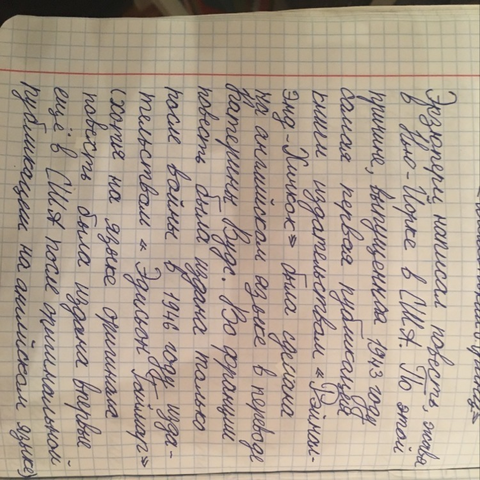 Экзюпери написал повесть,
в Нью-Йорке в США. По этой
причине, выпущенная 1943 году
самая первая публикация
книги издательством «Рейнал-
Энд-Хичкок» была сделана
на английском языке в переводе
Катерины Вудс. Во Франции
повесть была издана только
после войны в 1946 году изда-
тельством «Эдисьон Галимар»
(хотя на языке оригинала
повесть была издана впервые
ещё в США после оригинальной
публикации на английском языке)